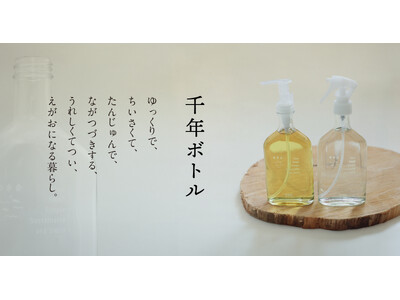 千年ボトル
ゆっくりで、
ちいさくて、
たんじゅんで、
ながつづきする、
うれしくてつい、
えがおになる暮らし。